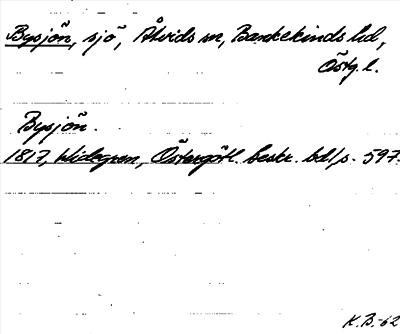 Bysjön, sjö, Åtvids sn, Bankekinds hd,
Östg. l.
Bysjön.
1817, Widegren, Östergötl. beskr. bd 1 s. 597.
K.B.-62